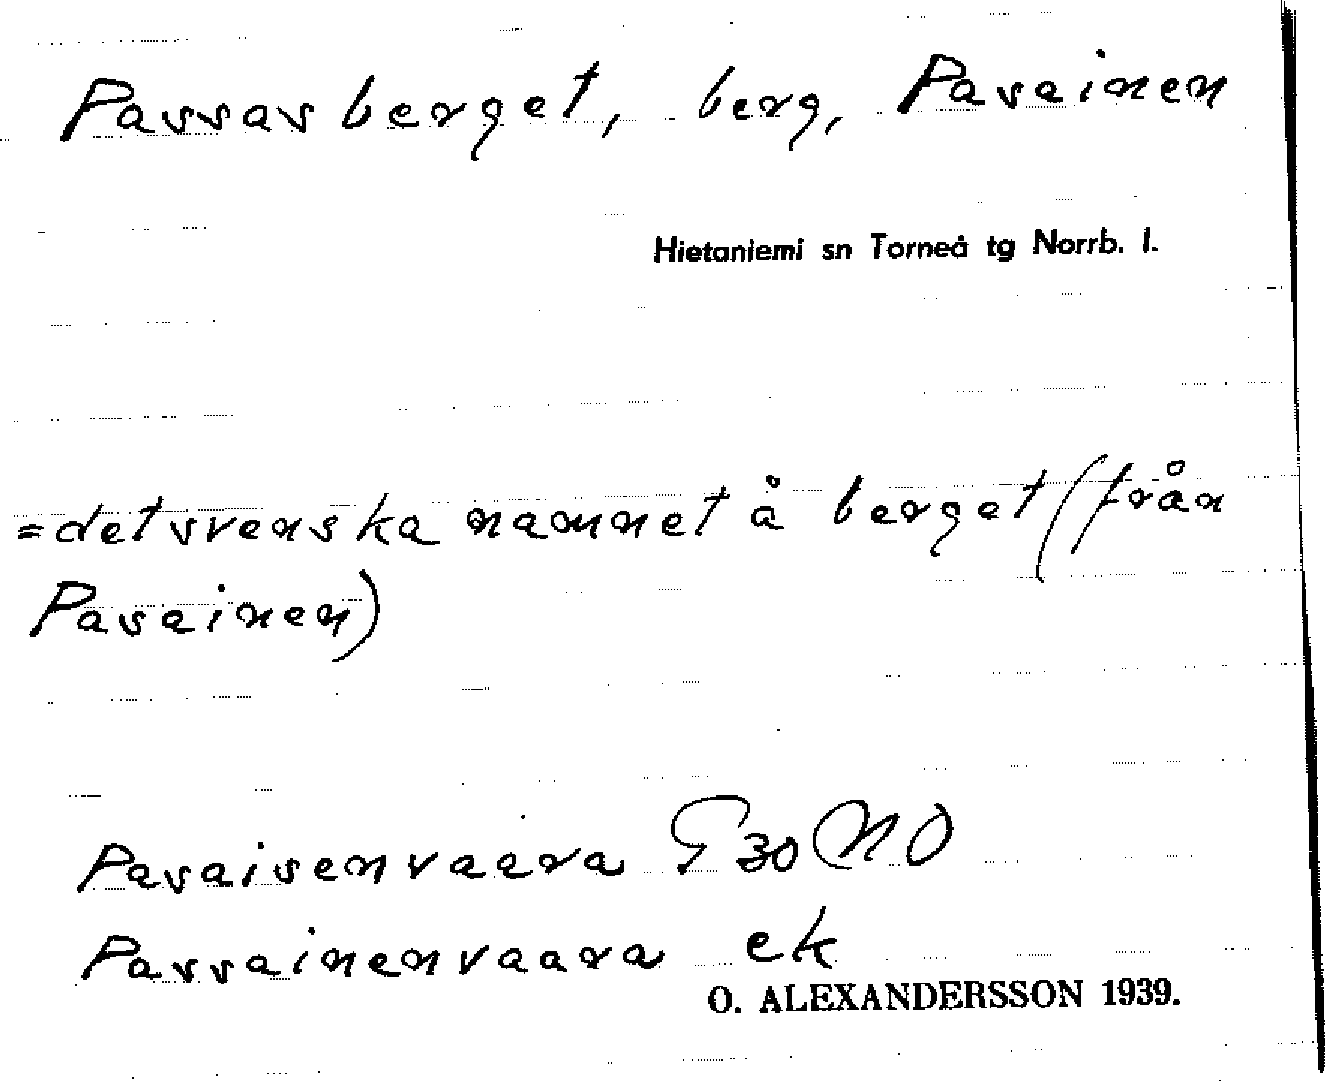 Passasberget, berg, Pasainen
Hietaniemi sn Torneå tg Norrb. l.
= det svenska namnet å berget (från
Pasainen)
Pasaisenvaara G 30 NO
Passainenvaara ek
O. ALEXANDERSSON 1939.